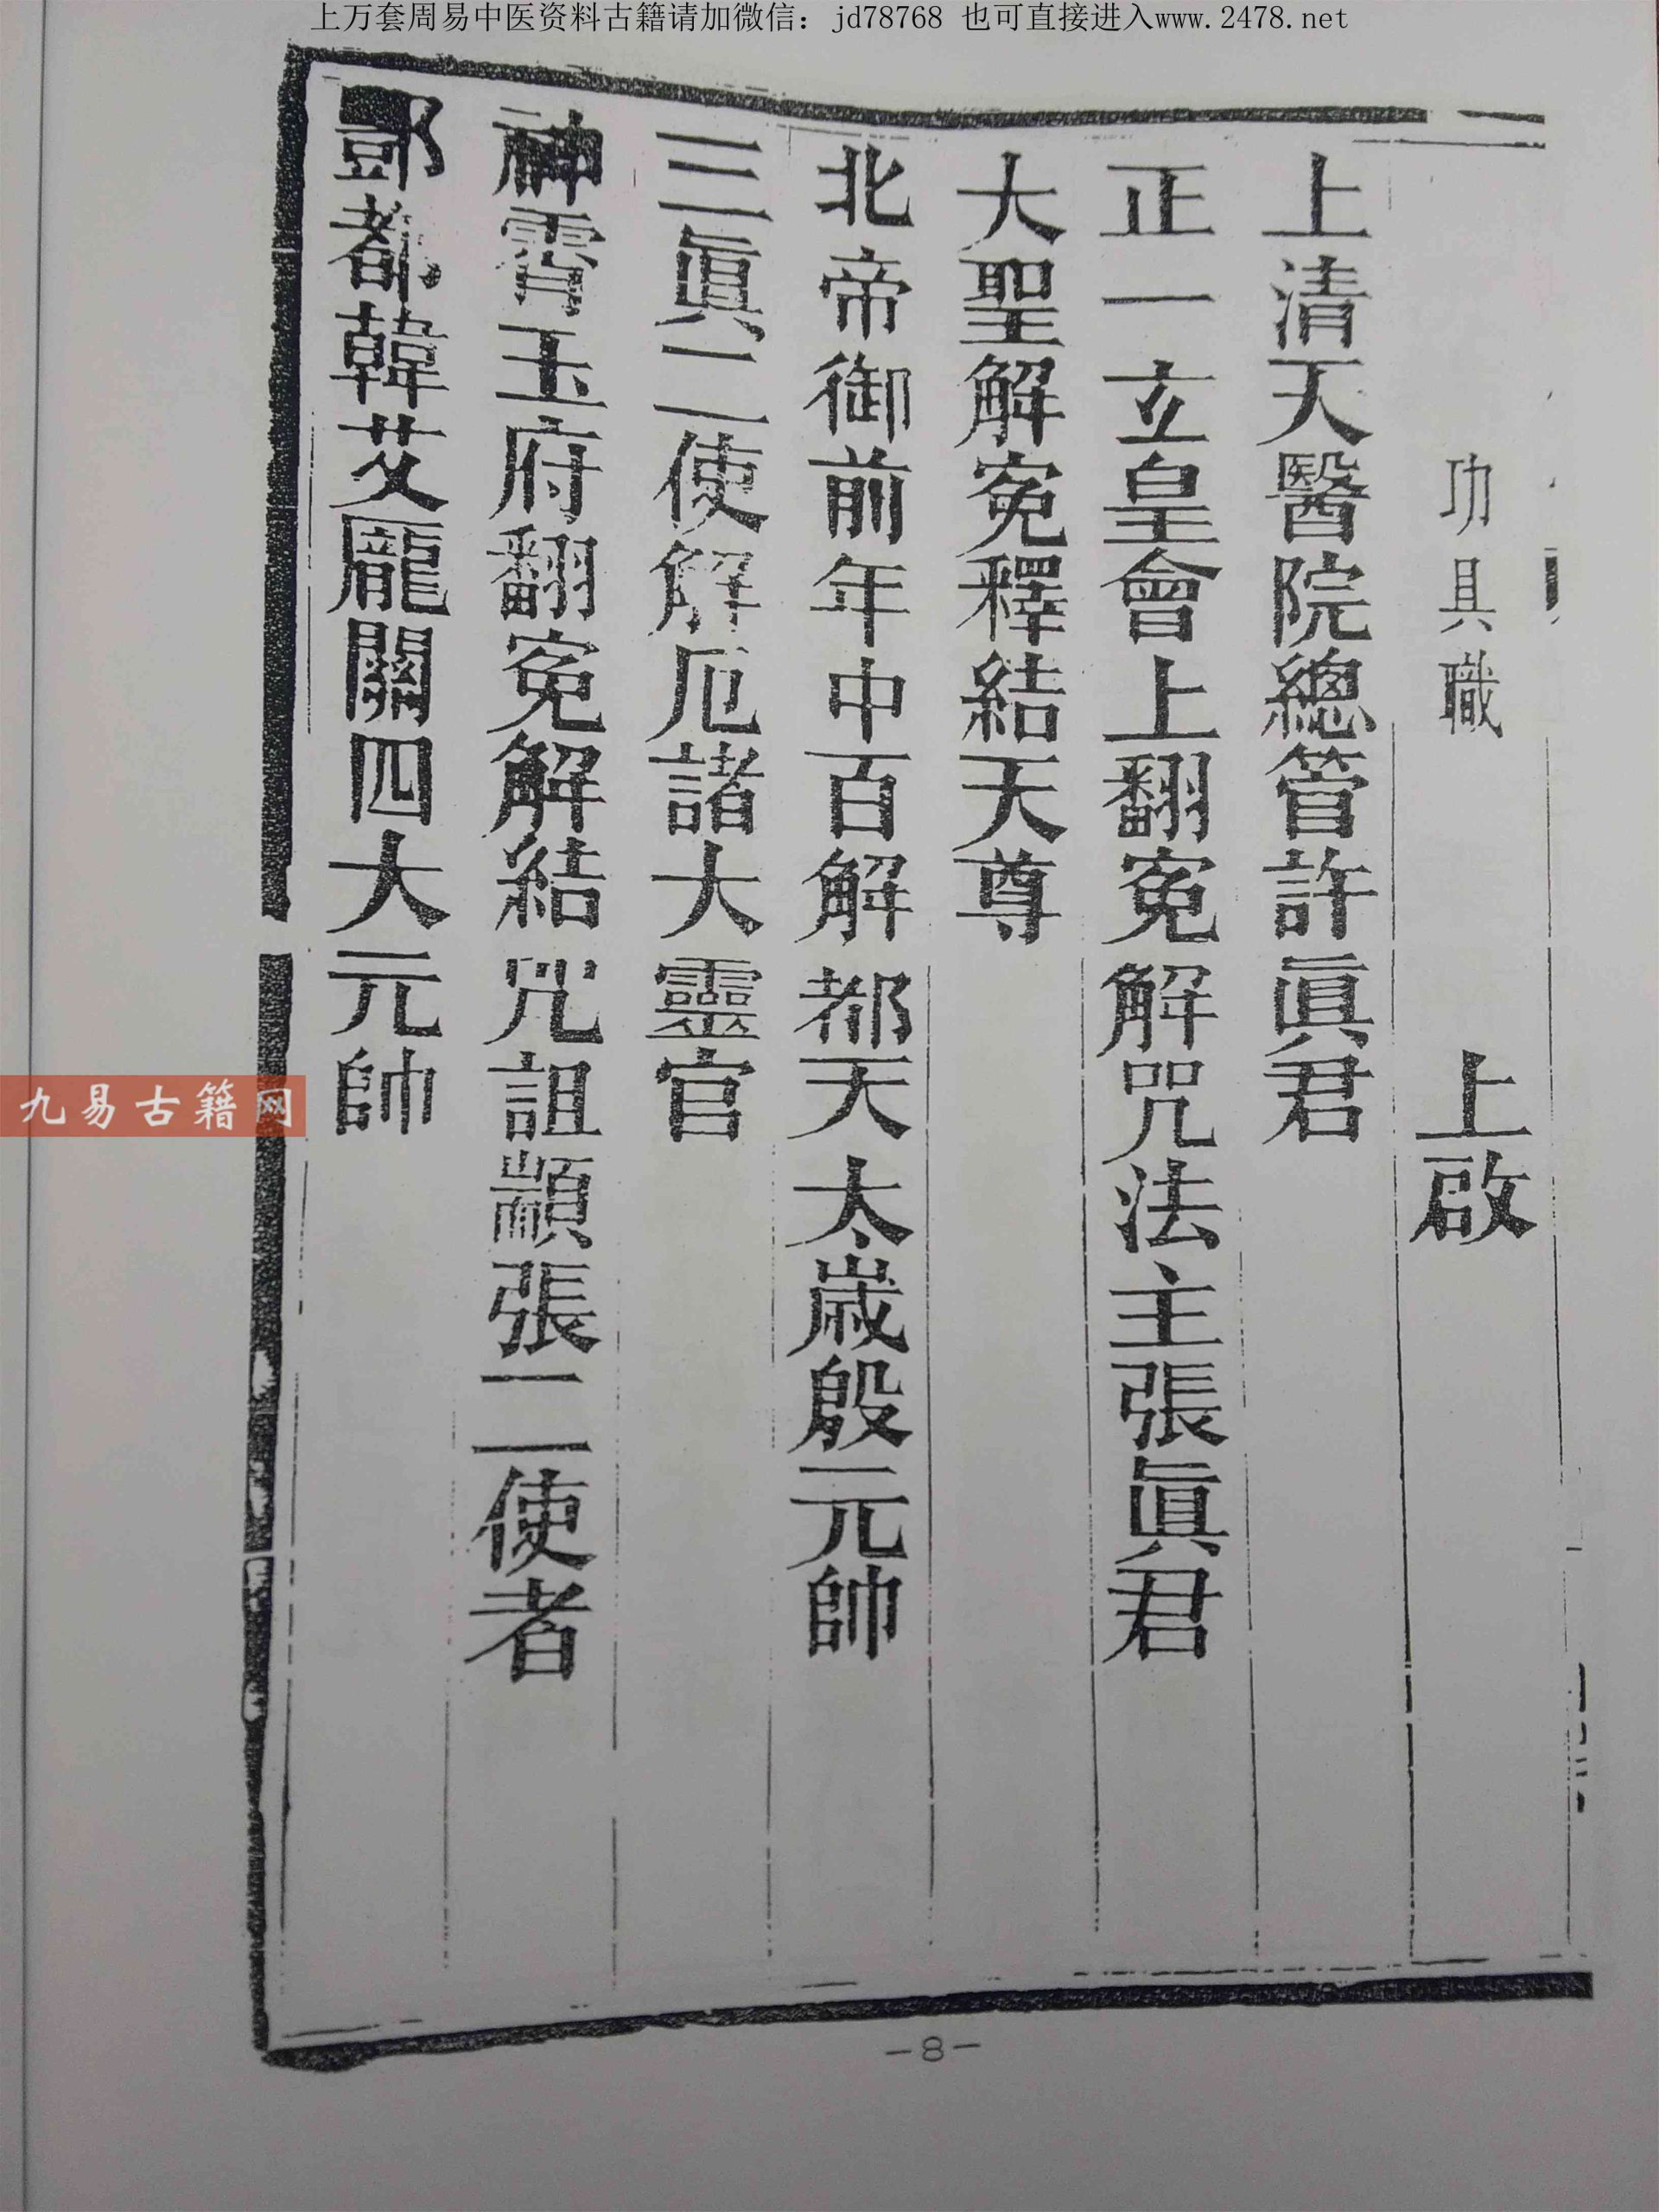 上万套周易中医资料古籍请加微信：jd78768 也可直接进入www.2478.net
功具職 上啟
上清天醫院總管許眞君
正一玄皇會上翻寃解咒法主張眞君
大聖解寃釋結天尊
北帝御前年中百解都天太歲殷元帥
三眞二使解厄諸大靈官
神霄玉府翻寃解結咒詛顓張二使者
酆都韓艾龎關四大元帥
九易古籍网
-8-